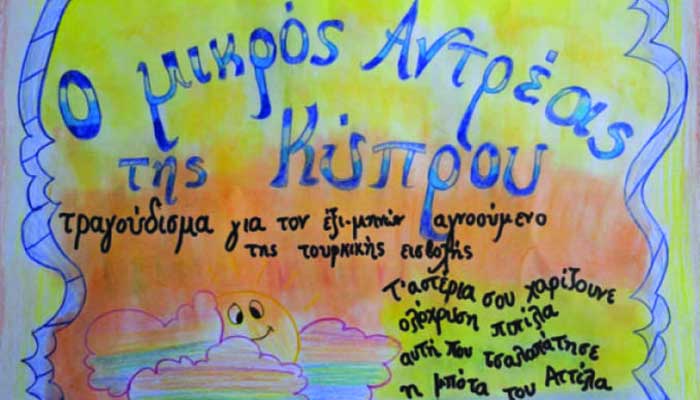 Ο μικρός Αντρέας
της Κύπρου
τραγούδισμα για τον έξι-μηνών αγνοούμενο
της τουρκικής εισβολής
τ'αστέρια σου χαρίζουνε
ολόχρυση πιπίλα
αυτή που τσαλαπάτησε
η μπότα του Αττίλα